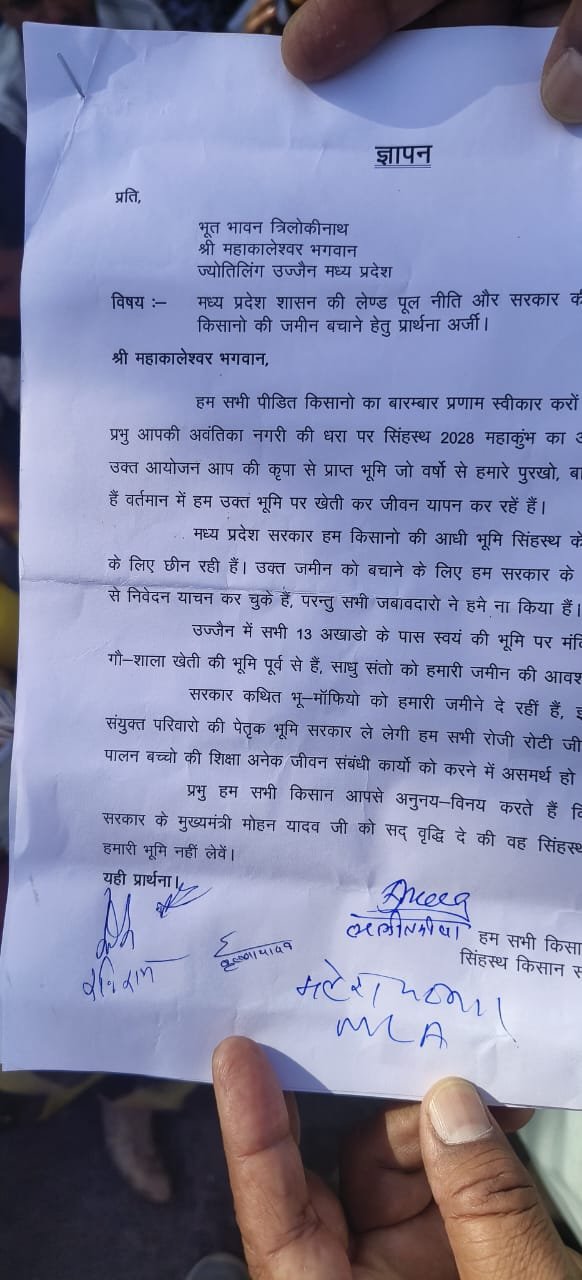 ज्ञापन
प्रति,
भूत भावन त्रिलोकीनाथ
श्री महाकालेश्वर भगवान
ज्योतिलिंग उज्जैन मध्य प्रदेश
विषय :– मध्य प्रदेश शासन की लेण्ड पूल नीति और सरकार
किसानो की जमीन बचाने हेतु प्रार्थना अर्जी।
श्री महाकालेश्वर भगवान,
हम सभी पीडित किसानो का बारम्बार प्रणाम स्वीकार करों
प्रभु आपकी अवंतिका नगरी की धरा पर सिंहस्थ 2028 महाकुंभ का
उक्त आयोजन आप की कृपा से प्राप्त भूमि जो वर्षो से हमारे पुरखो,
हैं वर्तमान में हम उक्त भूमि पर खेती कर जीवन यापन कर रहें हैं।
मध्य प्रदेश सरकार हम किसानो की आधी भूमि सिंहस्थ
के लिए छीन रही हैं। उक्त जमीन को बचाने के लिए हम सरकार के
से निवेदन याचन कर चुके हैं, परन्तु सभी जबावदारो ने हमे ना किया हैं।
उज्जैन में सभी 13 अखाडो के पास स्वयं की भूमि पर
गौ–शाला खेती की भूमि पूर्व से हैं, साधु संतो को हमारी जमीन की
सरकार कथित भू–मॉफियो को हमारी जमीने दे रहीं हैं,
संयुक्त परिवारो की पेतृक भूमि सरकार ले लेगी हम सभी रोजी रोटी
पालन बच्चो की शिक्षा अनेक जीवन संबंधी कार्यो को करने में असमर्थ हो
प्रभु हम सभी किसान आपसे अनुनय–विनय करते हैं
सरकार के मुख्यमंत्री मोहन यादव जी को सद् वृद्धि दे की वह सिंहस्थ
हमारी भूमि नहीं लेवें।
यही प्रार्थना।
हम सभी
सिंहस्थ किसान
महेश परमार
MLA